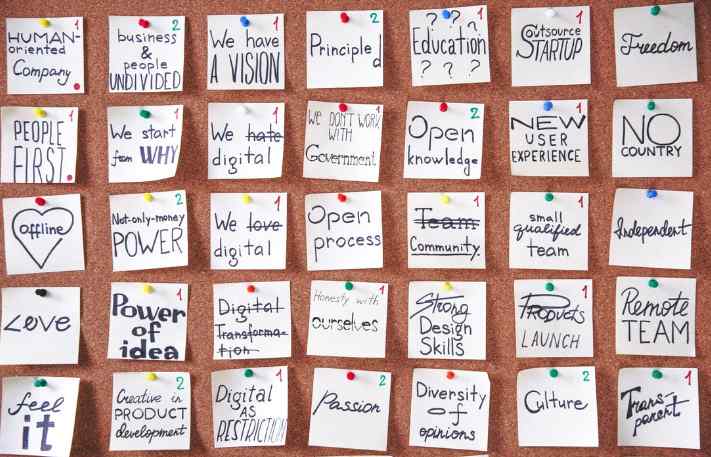 1
HUMAN-
oriented
Company
2
business
&
people
UNDIVIDED
1
We have
A VISION
2
Principled
1
? ? ?
Education
? ? ?
1
Outsource
STARTUP
Freedom
1
PEOPLE
FIRST.
1
We start
from WHY
1
We hate
digital
1
WE DON'T WORK
WITH
Government
2
Open
knowledge
1
NEW
USER
EXPERIENCE
NO
COUNTRY
offline
2
Not-only-money
POWER
1
We love
digital
Open
process
1
Team
Community.
1
small
qualified
team
Independent
Love
1
Power
of
idea
Digital
Transforma-
tion
1
Honesty with
ourselves
Strong
Design
Skills
1
PRODUCTS
LAUNCH
Remote
TEAM
feel
it
2
Creative in
PRODUCT
development
1
Digital
AS
RESTRICTION
2
Passion
Diversity
of
opinions
2
Culture
1
Trans-
parent